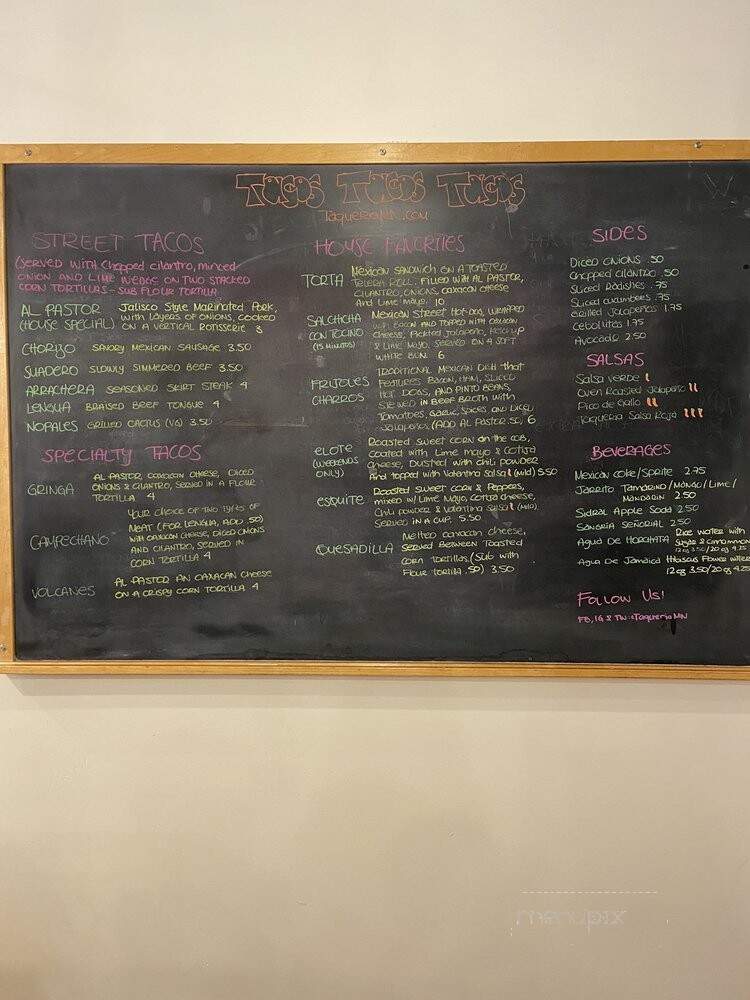 TACOS TACOS TACOS
TaqueriaMN.com
STREET TACOS
(SERVED WITH Chopped cilantro, minced
ONION AND LIME WEDGE ON TWO STACKED
CORN TORTILLAS - SUB FLOUR TORTILLA
AL PASTOR Jalisco Style Marinated Pork,
(HOUSE SPECIAL) WITH LAYERS OF ONIONS, COOKED
ON A VERTICAL ROTISSERIE 3
CHORIZO SAVORY MEXICAN SAUSAGE 3.50
SUADERO SLOWLY SIMMERED BEEF 3.50
ARRACHERA SEASONED SKIRT STEAK 4
LENGUA BRAISED BEEF TONGUE 4
NOPALES GRILLED CACTUS (VG) 3.50
SPECIALTY TACOS
GRINGA AL PASTOR, OAXACAN CHEESE, DICED
ONIONS & CILANTRO, SERVED IN A FLOUR
TORTILLA 4
CAMPECHANO YOUR CHOICE OF TWO TYPES OF
MEAT (FOR LENGUA, ADD .50)
WITH OAXACAN CHEESE, DICED ONIONS
AND CILANTRO, SERVED IN
CORN TORTILLA 4
VOLCANES AL PASTOR AN OAXACAN CHEESE
ON A CRISPY CORN TORTILLA 4
HOUSE FAVORITIES
TORTA Mexican SANDWICH ON A TOASTED
TELERA ROLL. FILLED WITH AL PASTOR,
CILANTRO, ONIONS, OAXACAN CHEESE
AND LIME MAYO. 10
SALCHICHA CON TOCINO (15 MINUTOS) Mexican STREET HOT-DOG, WRAPPED
WITH BACON AND TOPPED WITH OAXACAN
CHEESE, Pickled Jalapeño, KETCHUP
& LIME MAYO. SERVED ON A SOFT
WHITE BUN. 6
FRIJOLES CHARROS TRADITIONAL MEXICAN DISH THAT
FEATURES BACON, HAM, SLICED
HOT DOGS, AND PINTO BEANS,
STEWED IN BEEF BROTH WITH
TOMATOES, GARLIC, SPICES AND DICED
Jalapeños. (ADD AL PASTOR .50) 6
ELOTE (WEEKENDS ONLY) Roasted sweet corn on the cob,
coated with Lime mayo & Cotija
cheese, Dusted with chili powder
And topped with Valentina Salsa (Mild) 5.50
ESQUITE Roasted Sweet corn & Peppers,
mixed w/ Lime Mayo, Cotija cheese,
Chili powder & Valentina Salsa (Mild)
Served in a cup. 5.50
QUESADILLA Melted oaxacan cheese,
Served Between Toasted
corn Tortillas (Sub with
Flour Tortilla .50) 3.50
SIDES
Diced Onions .50
Chopped Cilantro .50
Sliced Radishes .75
Sliced cucumbers .75
Grilled Jalapeños 1.75
Cebollitas 1.75
Avocado 2.50
SALSAS
Salsa verde
Oven Roasted Jalapeño
Pico de Gallo
Taqueria Salsa Roja
BEVERAGES
Mexican coke/Sprite 2.75
Jarrito Tamarind/Mango/Lime/
Mandarin 2.50
Sidral Apple Soda 2.50
Sangria Señorial 2.50
Agua De Horchata Rice water with
Sugar & Cinnamon
12 oz 3.50/20 oz 4.25
Agua De Jamaica Hibiscus Flower water
12 oz 3.50/20 oz 4.25
Follow Us!
FB, IG & TW: @TaqueriaMN
menupix